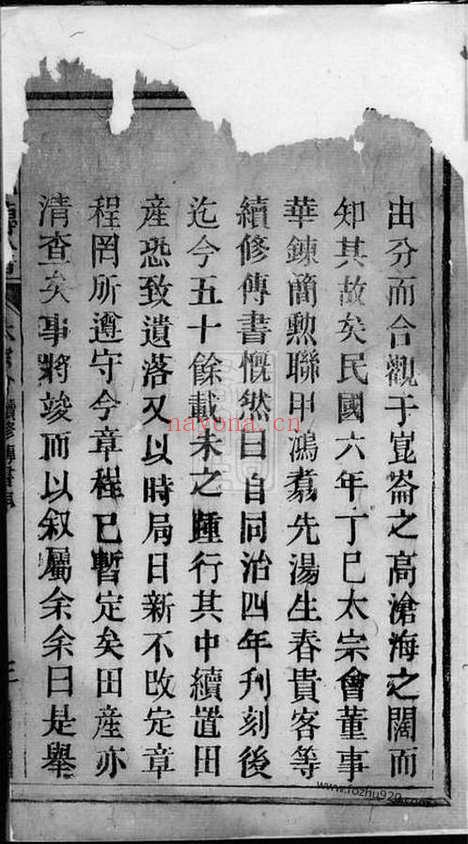 由分而合觀于崑崙之高滄海之闊而
知其故矣民國六年丁巳太宗會董事
華鍊簡勲聯甲鴻翥先湯生春貴客等
續修傳書慨然曰自同治四年刋刻後
迄今五十餘載未之踵行其中續置田
產恐致遺落又以時局日新不改定章
程罔所遵守今章程已暫定矣田產亦
清查矣事將竣而以叙屬余余曰是舉
nayona.cn
www.fozhu920.com